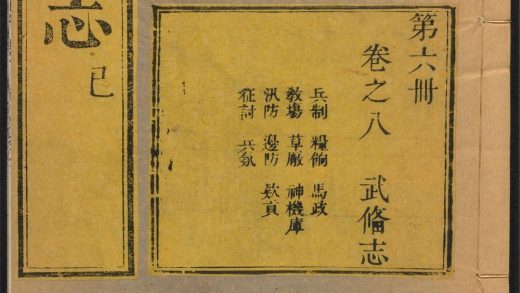 第六冊
卷之八 武俻志
兵制 糧餉 馬政
教場 草厰 神機庫
汛防 邊防 欵貢
征討 兵氛
志 己